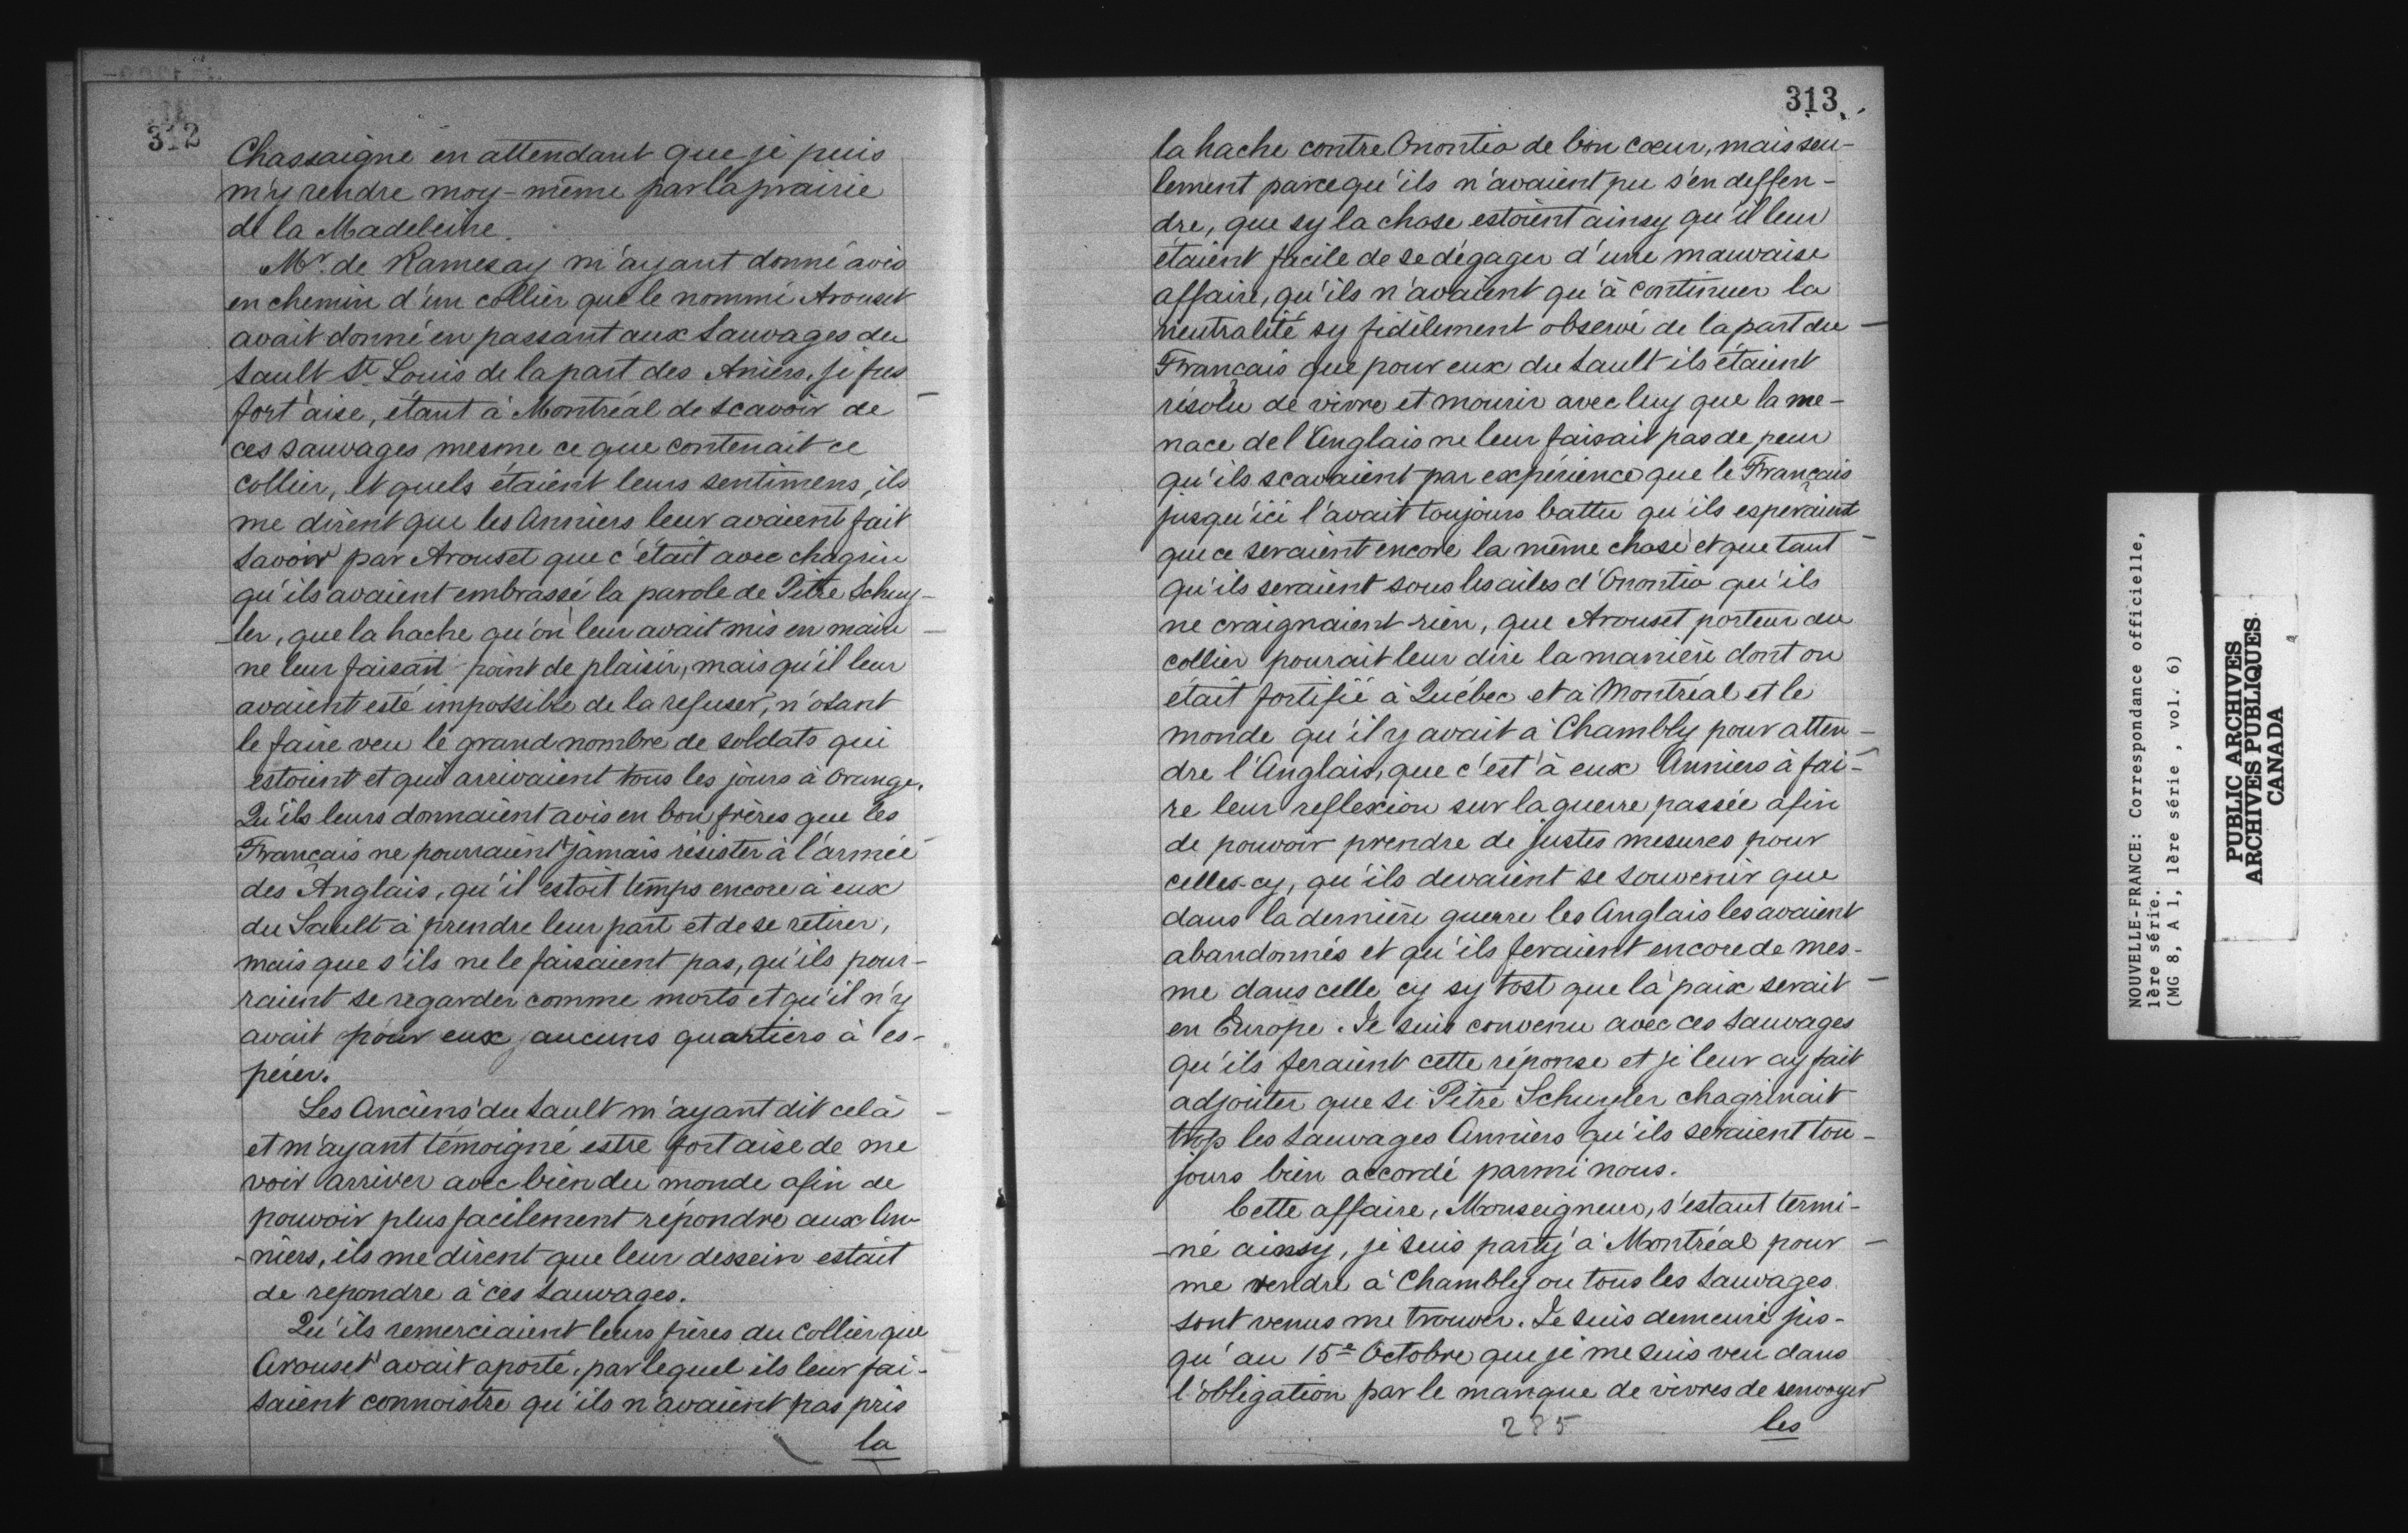 312
Chassaigne en attendant que je puis
m'y rendre moy-même par la prairie
de la Madeleine.
Mr. de Ramesay m'ayant donné avis
en chemin d'un collier que le nommé Arouset
avait donné en passant aux Sauvages du
Sault St. Louis de la part des Aniers, je fus
fort aise, étant à Montréal de scavoir de
ces sauvages mesme ce que contenait ce
collier, et quels étaient leurs sentimens, ils
me dirent que les Anniers leur avaient fait
savoir par Arouset que c'était avec chagrin
qu'ils avaient embrassé la parole de Pitre Schuy-
ler, que la hache qu'on leur avait mis en main
ne leur faisait point de plaisir, mais qu'il leur
avaient esté impossible de la refuser, n'osant
le faire veu le grand nombre de soldats qui
estoient et qui arrivaient tous les jours à Orange.
Qu'ils leurs donnaient avis en bon frères que les
Français ne pourraient jamais résister à l'armée
des Anglais, qu'il estoit temps encore à eux
du Sault à prendre leur part et de se retirer,
mais que s'ils ne le faisaient pas, qu'ils pour-
raient se regarder comme morts et qu'il n'y
avait pour eux aucuns quartiers à es-
pérer.
Les Anciens du Sault m'ayant dit celà
et m'ayant témoigné estre fort aise de me
voir arriver avec bien du monde afin de
pouvoir plus facilement répondre aux An-
-niers, ils me dirent que leur dessein estait
de repondre à ces Sauvages.
Qu'ils remerciaient leurs frères du Collier que
Arouset avait aporté, par lequel ils leur fai-
saient connoistre qu'ils n'avaient pas pris
la
313
la hache contre Onontio de bon cœur, mais seu-
lement parcequ'ils n'avaient pu s'en deffen-
dre, que sy la chose estoient ainsy qu'il leur
étaient facile de se dégager d'une mauvaise
affaire, qu'ils n'avaient qu'à continuer la
neutralité sy fidèlement observé de la part du
Français que pour eux du Sault ils étaient
résolu de vivre et mourir avec luy que la me-
nace de l'Anglais ne leur faisait pas de peur
qu'ils scavaient par expérience que le Français
jusqu'ici l'avait toujours battu qu'ils esperaient
que ce seraient encore la même chose et que tant
qu'ils seraient sous les ailes d'Onontio qu'ils
ne craignaient rien, que Arouset porteur du
collier pourait leur dire la manière dont on
était fortifié à Québec et à Montréal et le
monde qu'il y avait à Chambly pour atten-
dre l'Anglais, que c'est à eux Anniers à fai-
re leur reflexion sur la guerre passée afin
de pouvoir prendre de justes mesures pour
celles-cy, qu'ils devaient se souvenir que
dans la dernière guerre les Anglais les avaient
abandonnés et qu'ils feraient encore de mes-
me dans celle cy sy tost que la paix serait
en Europe. Je suis convenu avec ces Sauvages
qu'ils feraient cette réponse et je leur ay fait
adjouter que si Pitre Schuyler chagrinait
trop les Sauvages Anniers qu'ils seraient tou-
jours bien accordé parmi nous.
Cette affaire, Monseigneur, s'estant termi-
-né ainsy, je suis party à Montréal pour
me rendre à Chambly ou tous les Sauvages
sont venus me trouver. Je suis demeuré jus-
qu'au 15e Octobre que je me suis veu dans
l'obligation par le manque de vivres de renvoyer
285
les
NOUVELLE-FRANCE: Correspondance officielle,
1ère série.
(MG 8, A 1, 1ère série, vol. 6)
PUBLIC ARCHIVES
ARCHIVES PUBLIQUES
CANADA